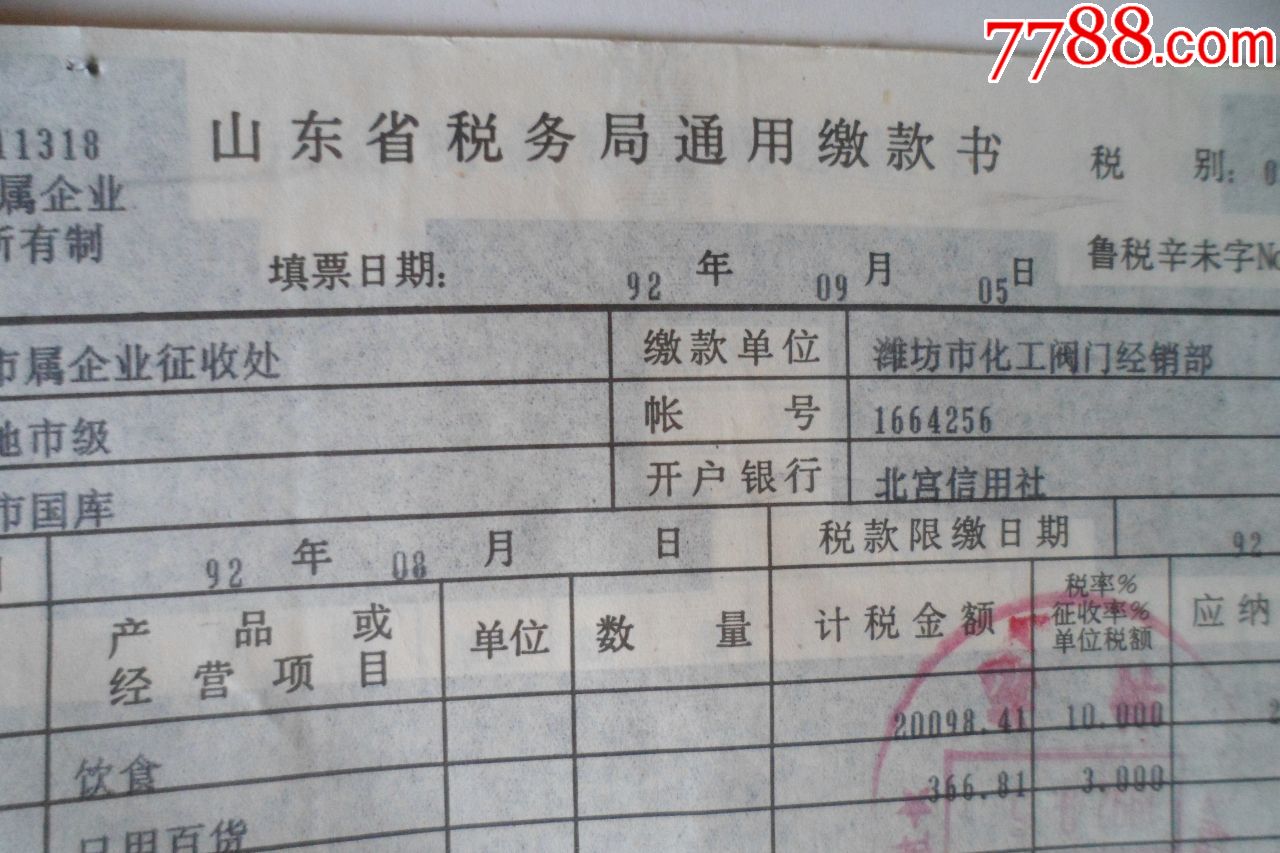 7788.com
山东省税务局通用缴款书
11318
属企业
所有制
税 别：0
填票日期： 92 年 09 月 05 日
鲁税辛未字No
市属企业征收处
缴款单位 潍坊市化工阀门经销部
地市级
帐 号 1664256
市国库
开户银行 北宫信用社
92 年 08 月 日
税款限缴日期 92
产品或
经营项目
单位
数量
计税金额
税率%
征收率%
单位税额
应纳
20098.41 10.000
饮食 366.81 3.000
日用百货